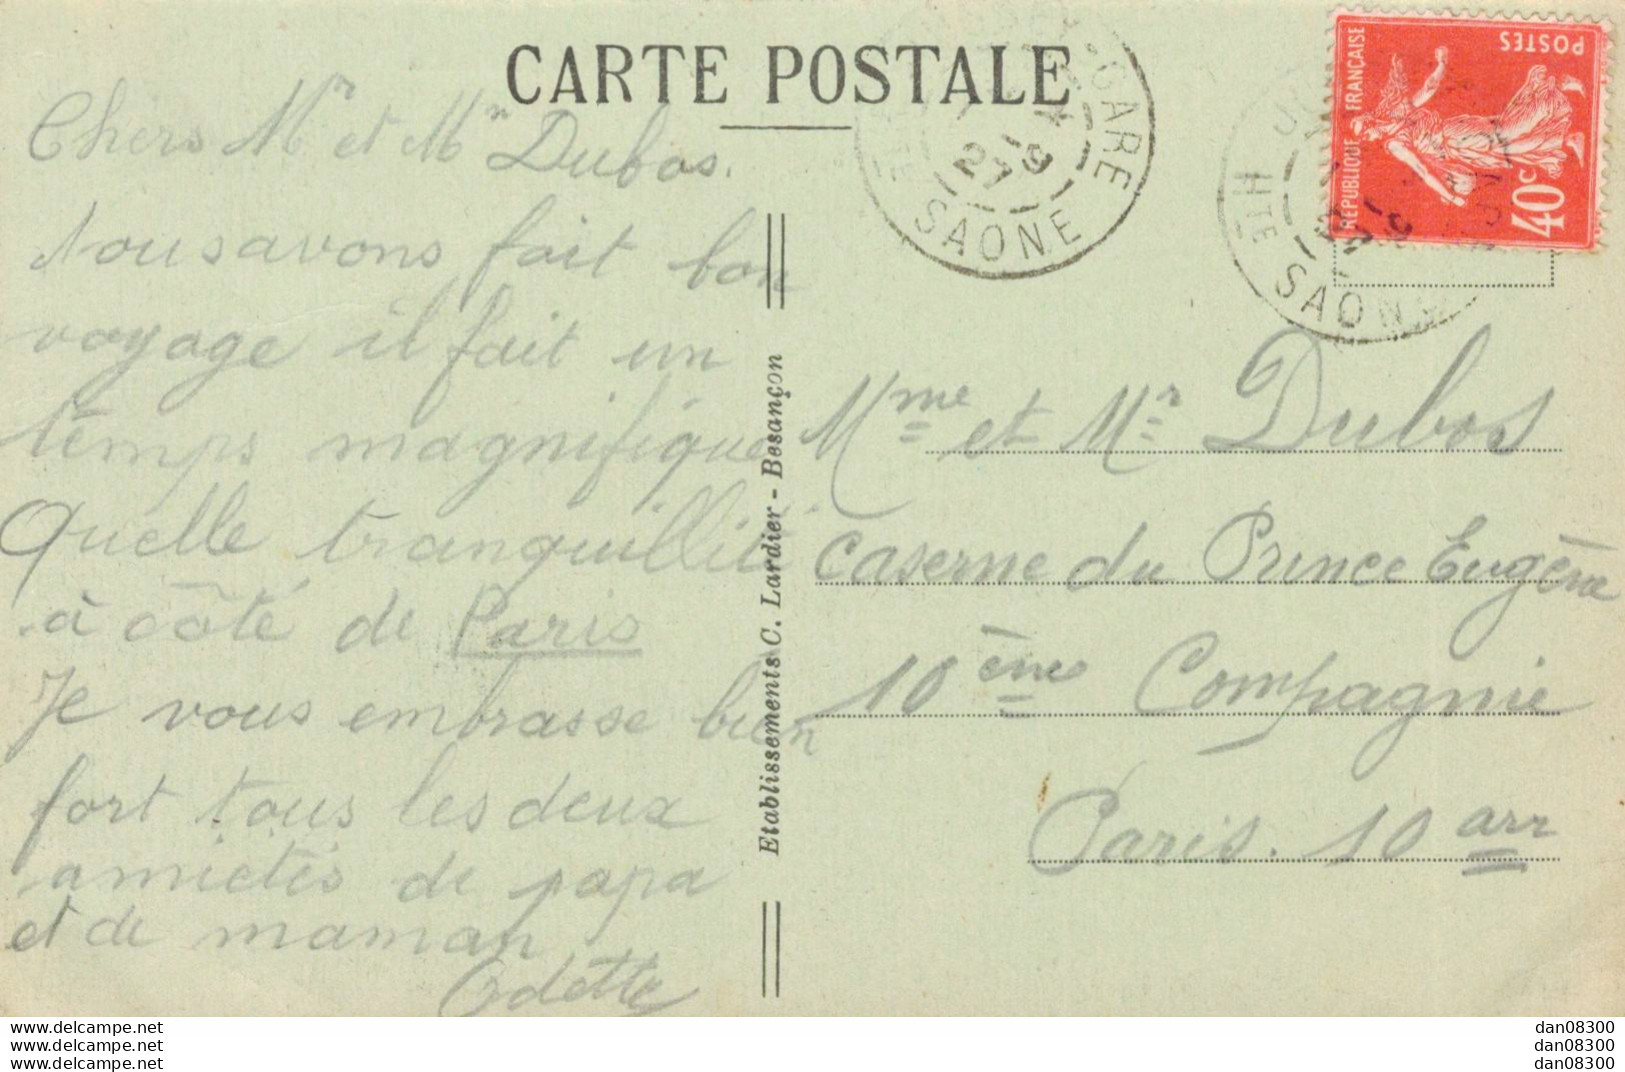 CARTE POSTALE
Chers Mr et Mm Dubos.
Nous avons fait bon
voyage il fait un
temps magnifique
Quelle tranquillité
à côté de Paris
Je vous embrasse bien
fort tous les deux
amictés de papa
et de maman
Odette
Etablissements C. Lardier - Besançon
GARE
HTE SAONE
27
RÉPUBLIQUE FRANÇAISE
POSTES
40c
HTE SAONE
Mme et Mr Dubos
Caserne du Prince Eugène
10ème Compagnie
Paris. 10 arr
www.delcampe.net
www.delcampe.net
www.delcampe.net
dan08300
dan08300
dan08300